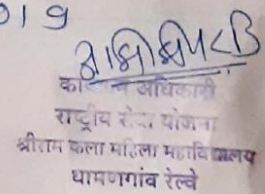 019
अधिकारी
राष्ट्रीय सेवा योजना
श्रीराम कला महिला महाविद्यालय
धामणगांव रेल्वे